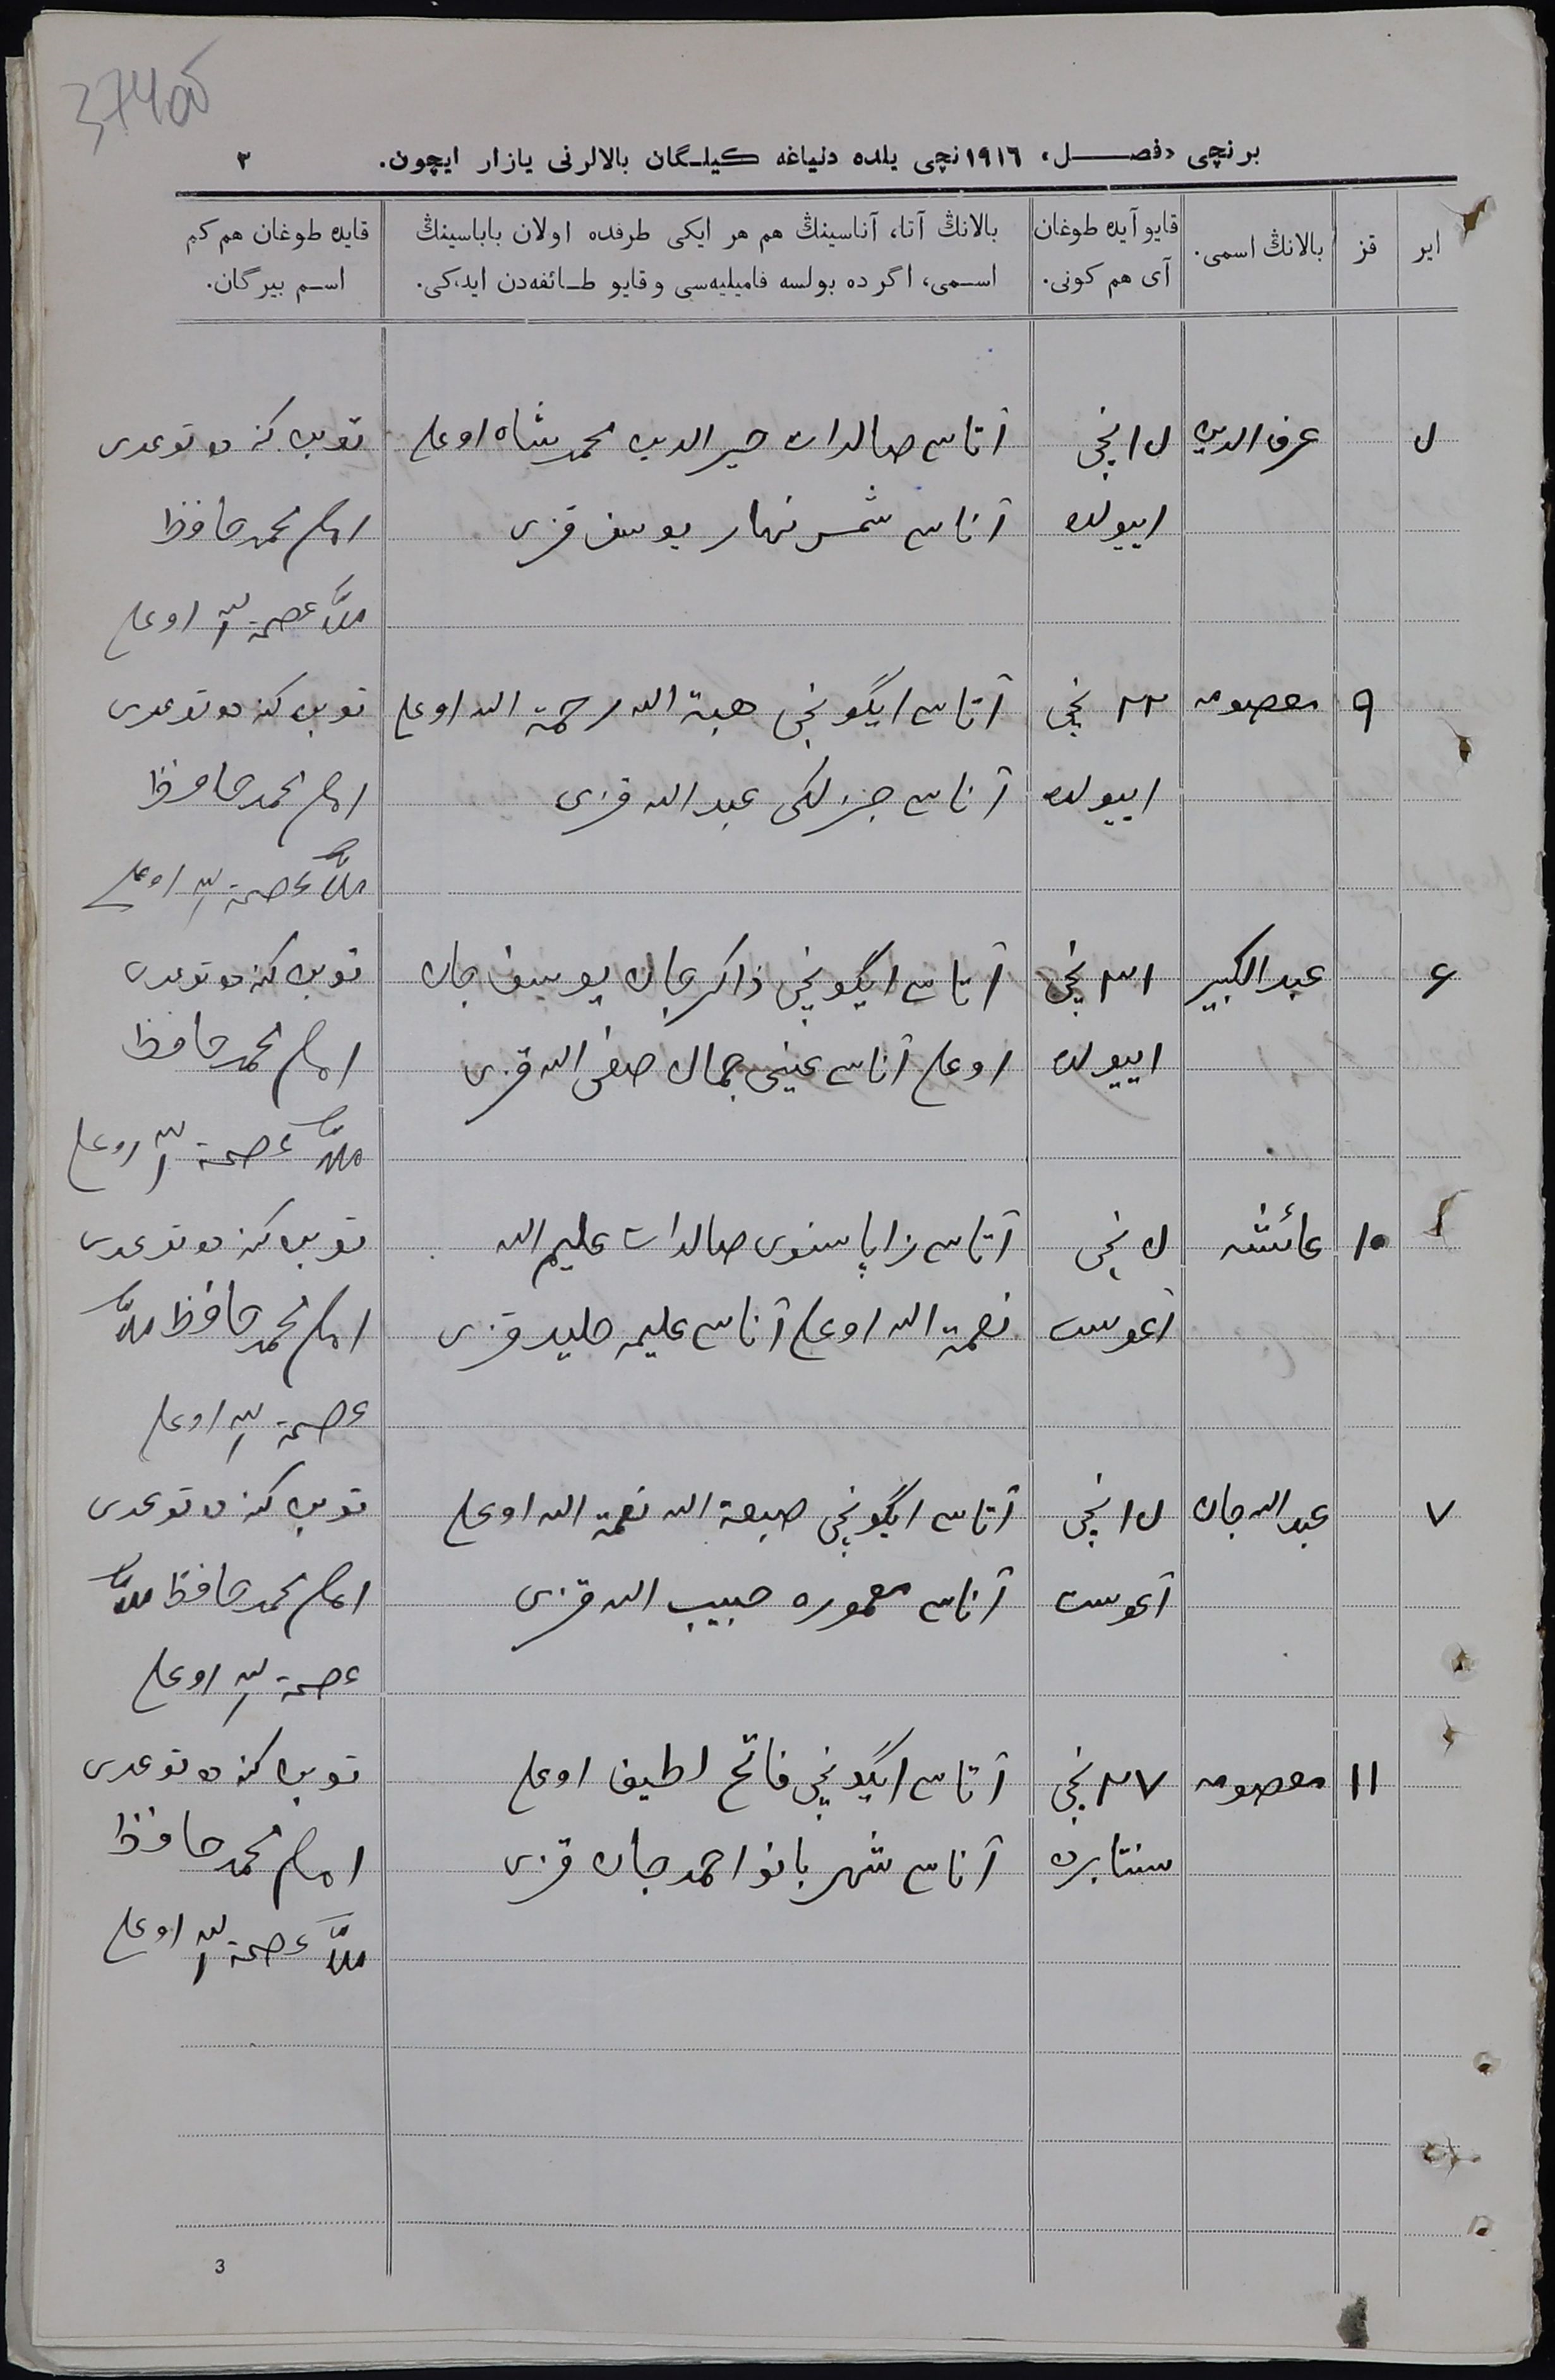 37405
برنچی «فصل» ١٩١٦نچی یلده دنیاغه كیلـگان بالالرنی یازار ایچون. ٣
ایر
قز
بالانڭ اسمی.
قایو آیده طوغان
آی هم كونی.
بالانڭ آتا، آناسینڭ هم هر ایكی طرفده اولان باباسینڭ
اسمی، اگر ده بولسه فامیلیه‌سی و قایو طائفه‌دن ایدكی.
قایده طوغان هم كم
اسم بیرگان.
٥ عرف الدین ١٥نچی آتاسی صالدات خیر الدین محمدشاه اوغلی توبن كنه ده توغدی
اییولده آناسی شمس نهار یوسف قزی امام محمد حافظ
ملا عصمة الله اوغلی
٩ معصومه ٢٢ نچی آتاسی ایگونچی هبة الله رحمة الله اوغلی توبن كنه ده توغدی
اییولده آناسی عبد الله قزی امام محمد حافظ
ملا عصمة الله اوغلی
٦ عبد الكبیر ٣١ نچی آتاسی ایگونچی ذاكرجان یوسف جان توبن كنه ده توغدی
اییولده اوغلی آناسی عینی جمال صفی الله قزی امام محمد حافظ
ملا عصمة الله اوغلی
١٠ عائشه ٥ نچی آتاسی زاپاسنوی صالدات علیم الله توبن كنه ده توغدی
آغوست نعمة الله اوغلی آناسی علیمه قزی امام محمد حافظ ملا
عصمة الله اوغلی
٧ عبد الله جان ١٥نچی آتاسی ایگونچی صبغة الله نعمة الله اوغلی توبن كنه ده توغدی
آغوست آناسی معموره حبیب الله قزی امام محمد حافظ ملا
عصمة الله اوغلی
١١ معصومه ٢٧ نچی آتاسی ایگونچی فاتح لطیف اوغلی توبن كنه ده توغدی
سنتابرده آناسی شهر بانو احمد جان قزی امام محمد حافظ
ملا عصمة الله اوغلی
3